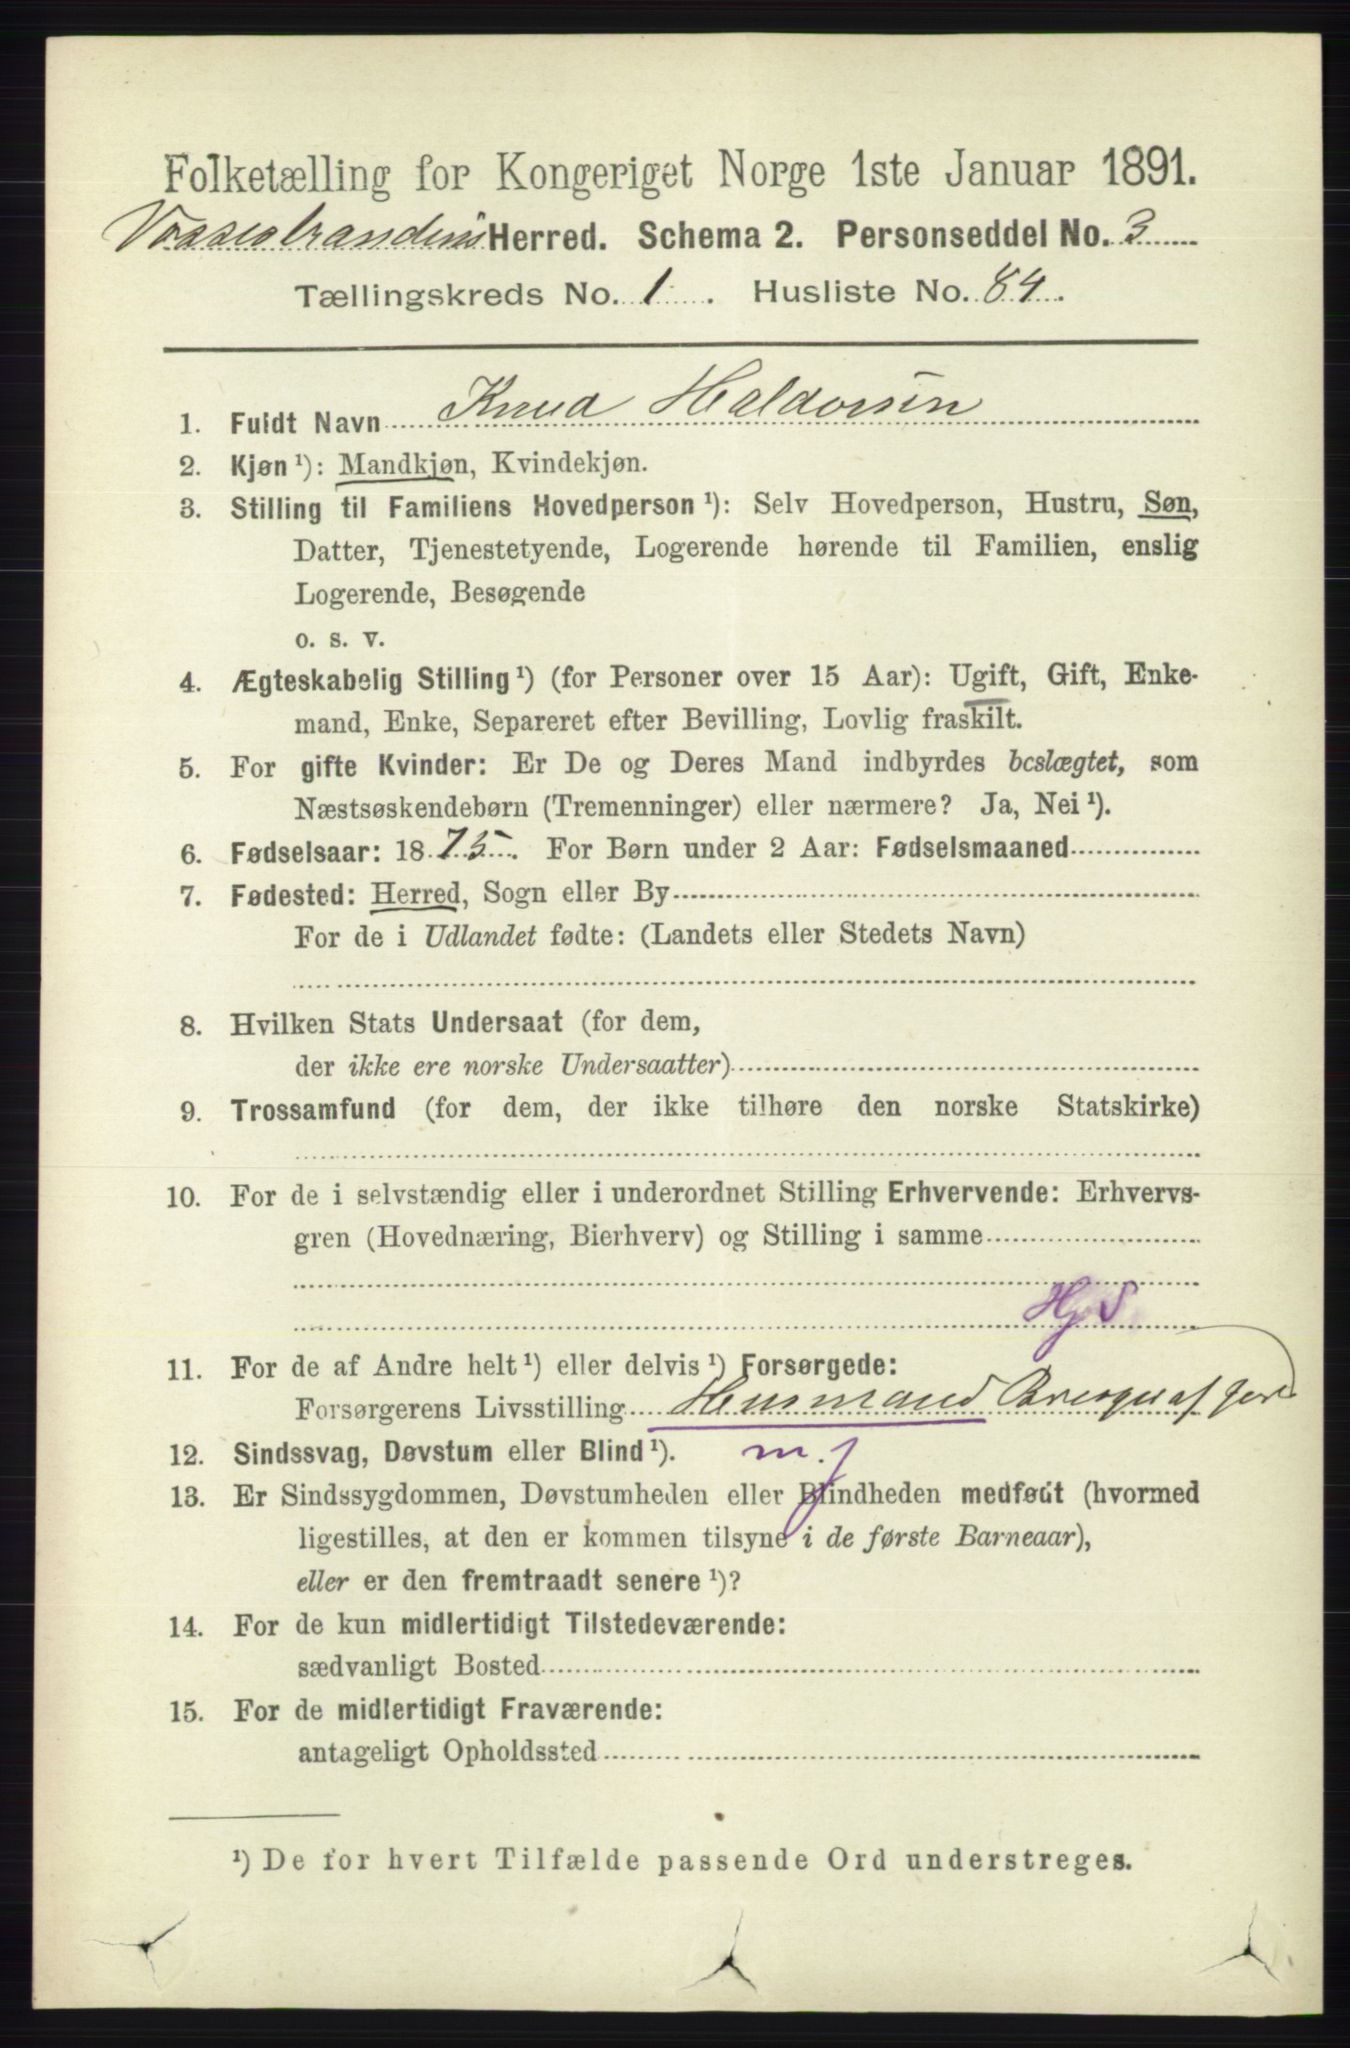 Folketælling for Kongeriget Norge 1ste Januar 1891.
Vossestrandens Herred. Schema 2. Personseddel No. 3
Tællingskreds No. 1. Husliste No. 84.
1. Fuldt Navn Knud Haldorsen
2. Kjøn ¹): Mandkjøn, Kvindekjøn.
3. Stilling til Familiens Hovedperson ¹): Selv Hovedperson, Hustru, Søn,
Datter, Tjenestetyende, Logerende hørende til Familien, enslig
Logerende, Besøgende
o. s. v.
4. Ægteskabelig Stilling ¹) (for Personer over 15 Aar): Ugift, Gift, Enke-
mand, Enke, Separeret efter Bevilling, Lovlig fraskilt.
5. For gifte Kvinder: Er De og Deres Mand indbyrdes beslægtet, som
Næstsøskendebørn (Tremenninger) eller nærmere? Ja, Nei ¹).
6. Fødselsaar: 1875. For Børn under 2 Aar: Fødselsmaaned
7. Fødested: Herred, Sogn eller By
For de i Udlandet fødte: (Landets eller Stedets Navn)
8. Hvilken Stats Undersaat (for dem,
der ikke ere norske Undersaatter)
9. Trossamfund (for dem, der ikke tilhøre den norske Statskirke)
10. For de i selvstændig eller i underordnet Stilling Erhvervende: Erhvervs-
gren (Hovednæring, Bierhverv) og Stilling i samme
HjS
11. For de af Andre helt ¹) eller delvis ¹) Forsørgede:
Forsørgerens Livsstilling Husmand af Jord
12. Sindssvag, Døvstum eller Blind ¹). m.j
13. Er Sindssygdommen, Døvstumheden eller Blindheden medfødt (hvormed
ligestilles, at den er kommen tilsyne i de første Barneaar),
eller er den fremtraadt senere ¹)?
14. For de kun midlertidigt Tilstedeværende:
sædvanligt Bosted
15. For de midlertidigt Fraværende:
antageligt Opholdssted
¹) De for hvert Tilfælde passende Ord understreges.